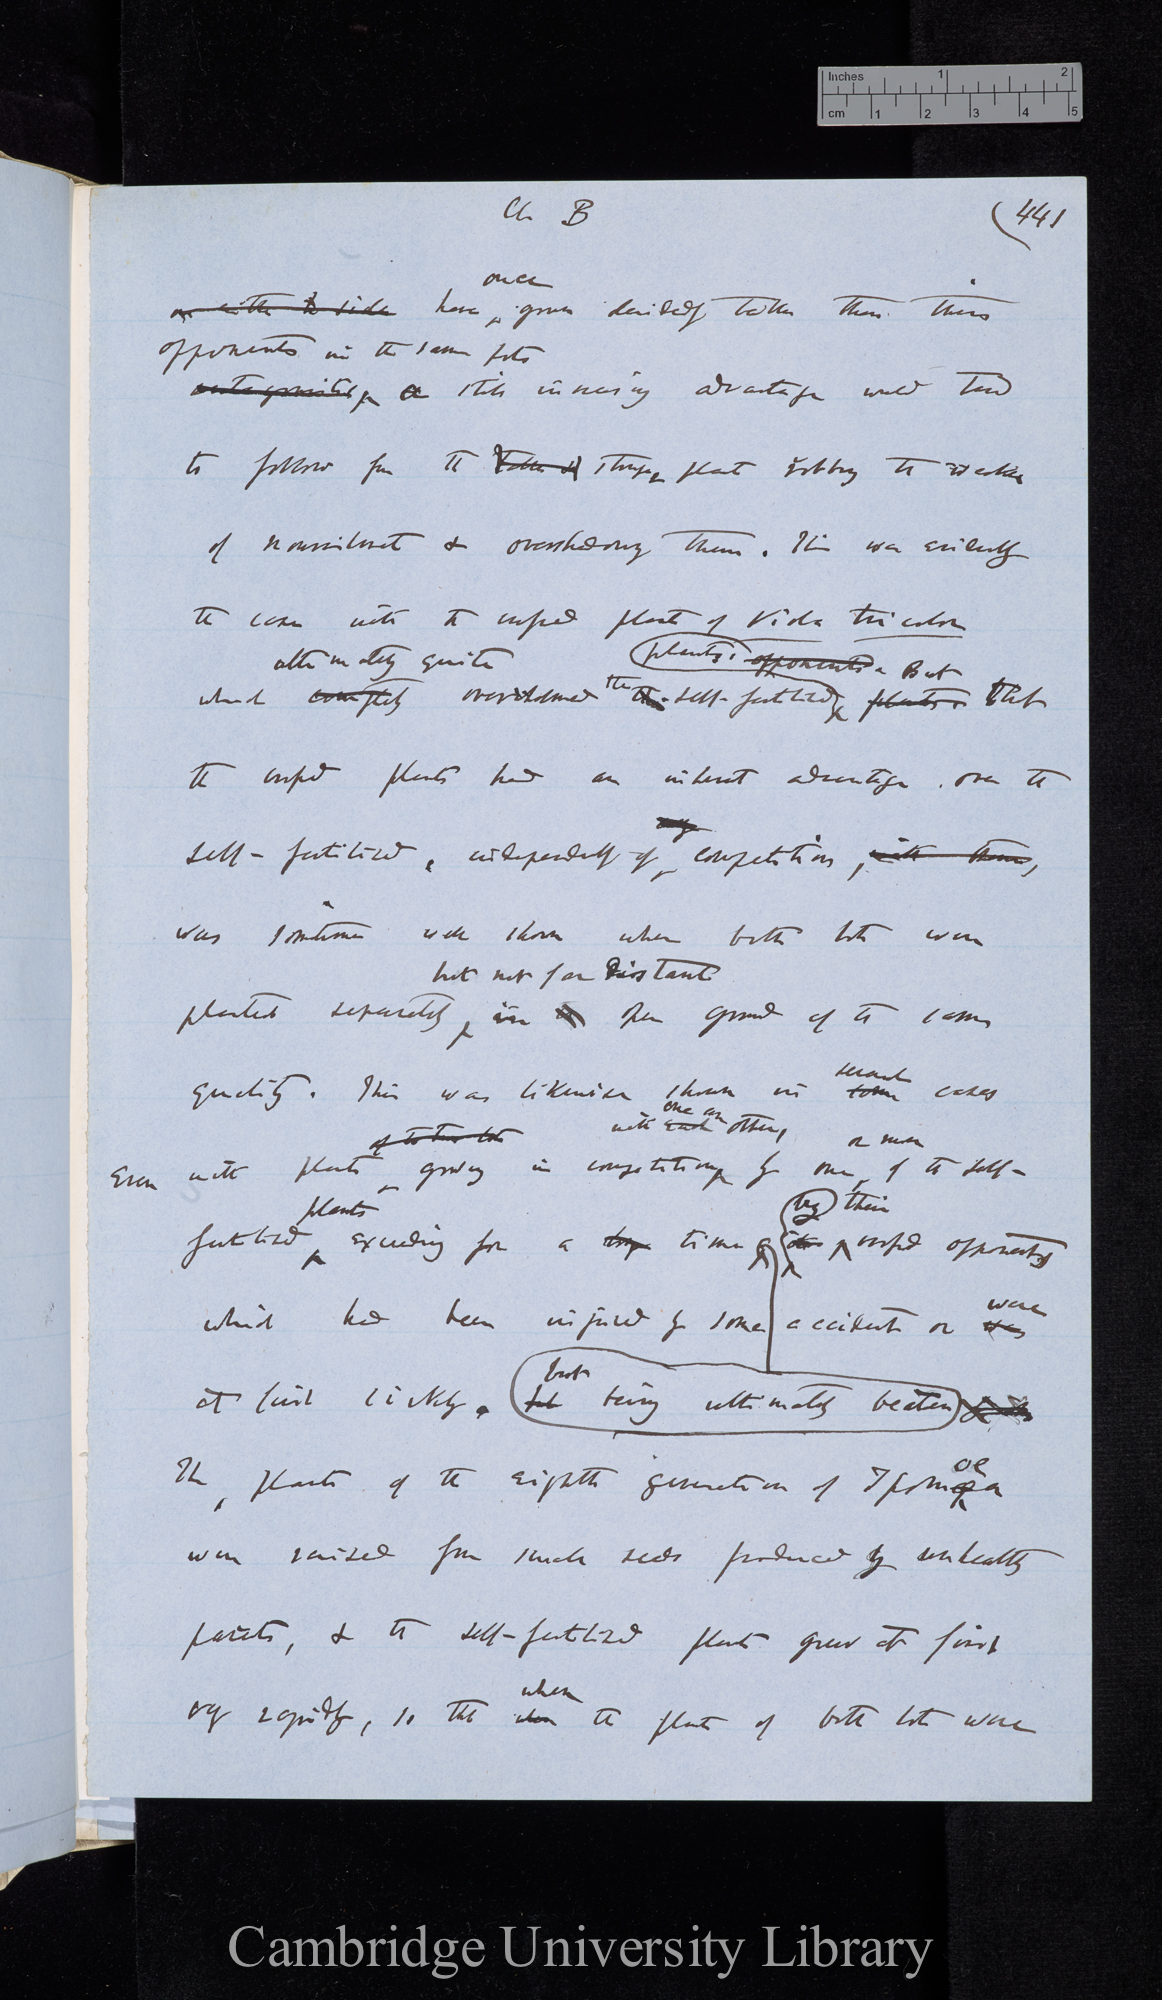 Inches 1 2
cm 1 2 3 4 5
Ch B (441
once
on either side have grown decidedly taller than their
opponents in the same pots
antagonists, a still increasing advantage would tend
to follow from the stronger plants robbing the weaker
of nourishment & overshadowing them. This was evidently
the case with the crossed plants of Viola tricolor
ultimately quite plants. opponents. But
which completely overwhelmed the the self-fertilised plants. That
the crossed plants had an inherent advantage over the
self-fertilised, independently of any competition, with them,
was sometimes well shown when both lots were
but not far distant
planted separately, in open ground of the same
quality. This was likewise shown in several some cases
of the two lots with each one another, or more
Even with plants growing in competition by one of the self-
plants by their
fertilised exceeding for a long time its crossed opponents
which had been injured by some accident or were was
at first sickly, but but being ultimately beaten
The plants of the eighth generation of Ipomoea
were raised from small seeds produced by unhealthy
parents, & the self-fertilised plants grew at first
when
very rapidly, so that when the plants of both lots were
Cambridge University Library